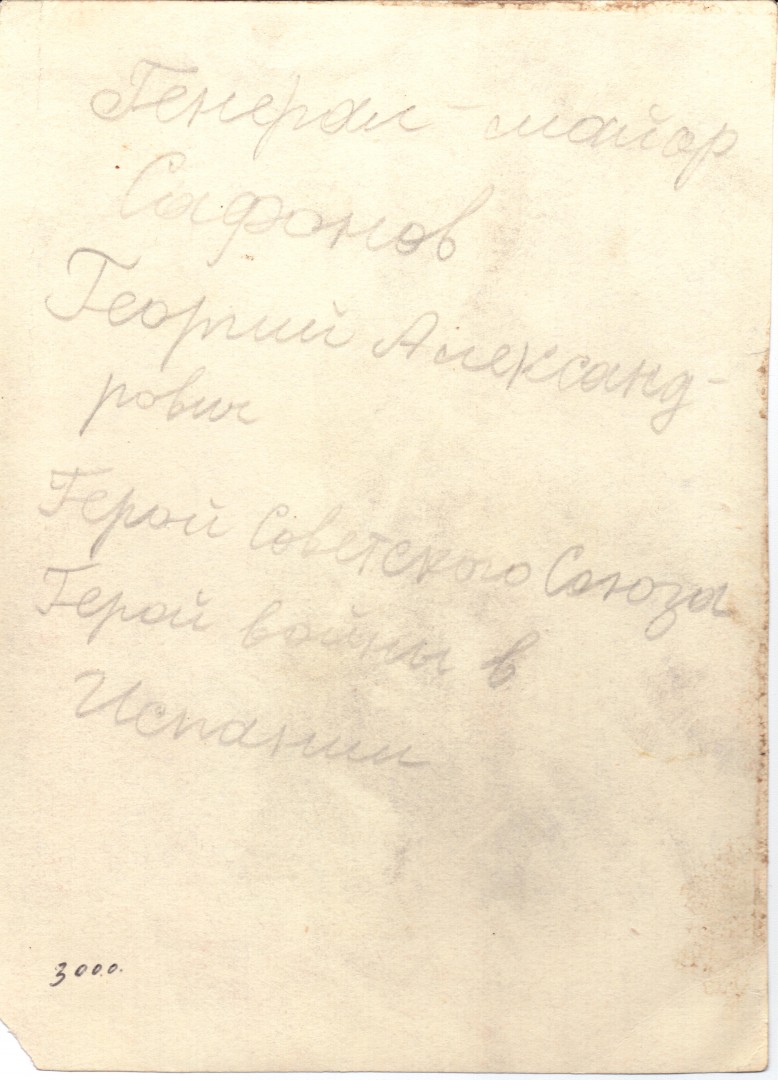 Генерал-майор
Сафонов
Георгий Александ-
рович
Герой Советского Союза
Герой войны в
Испании
3000.